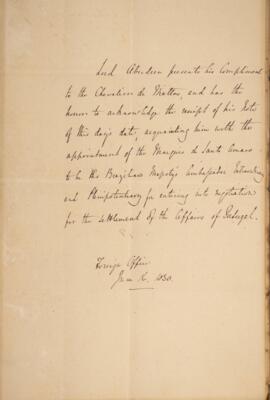 Lord Aberdeen presents his Compliments
to the Chevalier de Mattos, and has the
honor to acknowledge the receipt of his Note
of this day's date, acquainting him with the
appointment of the Marquis de Santo Amaro
to be His Brazilian Majesty's Ambassador Extraordinary
and Plenipotentiary for entering into negotiation
for the settlement of the Affairs of Portugal.
Foreign Office
June 1830.